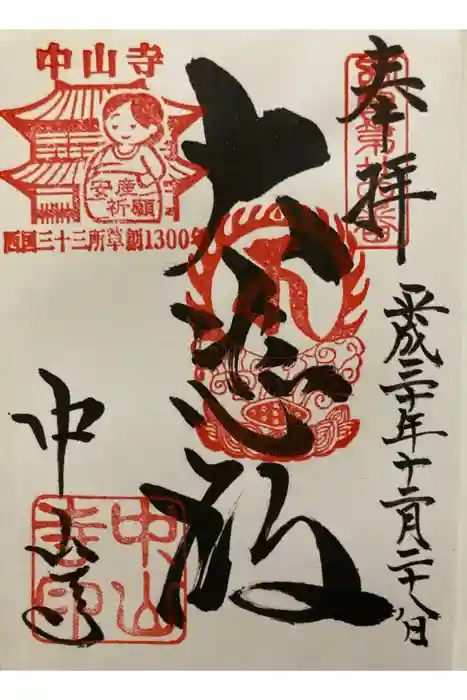 奉拝
平成三十年十二月二十八日
大悲殿
中山寺
中山寺
安産
祈願
西国三十三所草創1300年
中山
寺印